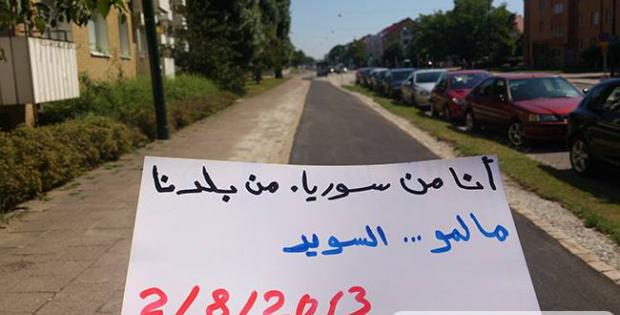 أنا من سوريا. من بلدنا
مالمو... السويد
2/8/2013